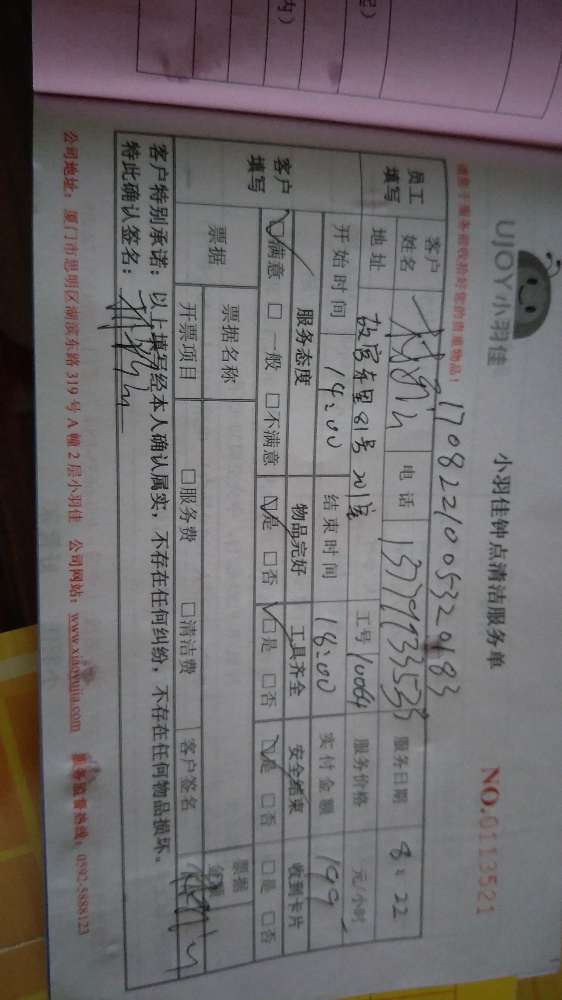 起）
内）
UJOY小羽佳
小羽佳钟点清洁服务单
NO.0113521
请您于服务前收拾好您的贵重物品！
1708221005320183
员工填写
客户姓名
电话
服务日期 8.22
地址 故宫东里81号
工号 10064 服务价格 元/小时
开始时间 14:00 结束时间 18:00 实付金额 199
客户填写
服务态度 物品完好 工具齐全 安全结束 收到卡片
☑满意 □一般 □不满意 ☑是 □否 ☑是 □否 ☑是 □否 □是 □否
票据 票据名称 票据金额
开票项目 □服务费 □清洁费 客户签名
客户特别承诺：以上填写经本人确认属实，不存在任何纠纷，不存在任何物品损坏。
特此确认签名：
公司地址：厦门市思明区湖滨东路319号A幢2层小羽佳 公司网站：www.xiaoyujia.com 服务监督热线：0592-5888123